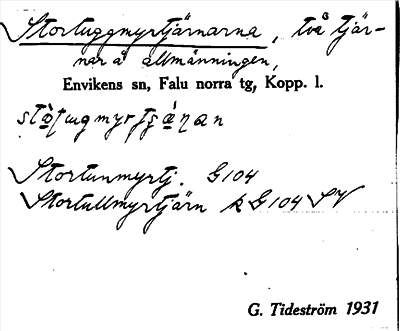 Stortuggmyrtjärnarna, två tjär-
nar å allmänningen,
Envikens sn, Falu norra tg, Kopp. l.
Stortunmyrtj. G104
Stortullmyrtjärn k G104 SV
G. Tideström 1931